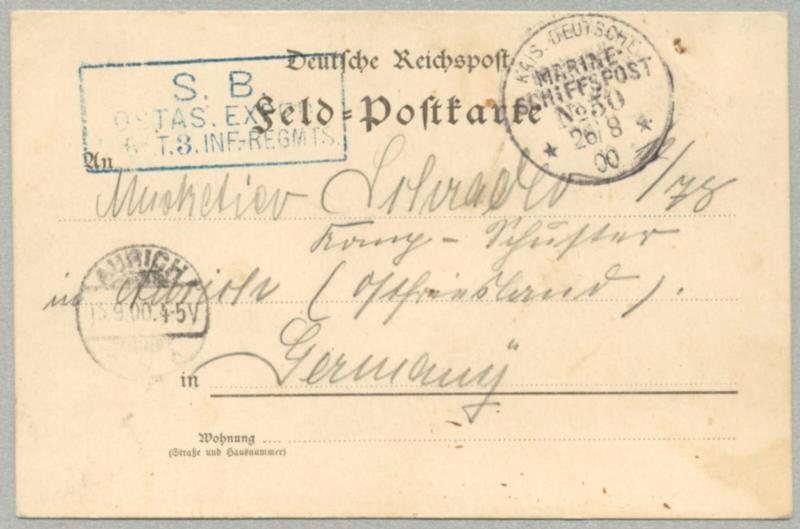 Deutsche Reichspost
Feld-Postkarte
S. B.
OSTAS. EXP.
T.3. INF.-REGMTS.
KAIS. DEUTSCHE
MARINE-
SCHIFFSPOST
No 50
26/8
00
An
Musketier /78
Komp - Schuster
in Aurich (Ostfriesland).
AURICH
15.9.00.4-5V
in Germany
Wohnung
(Straße und Hausnummer)